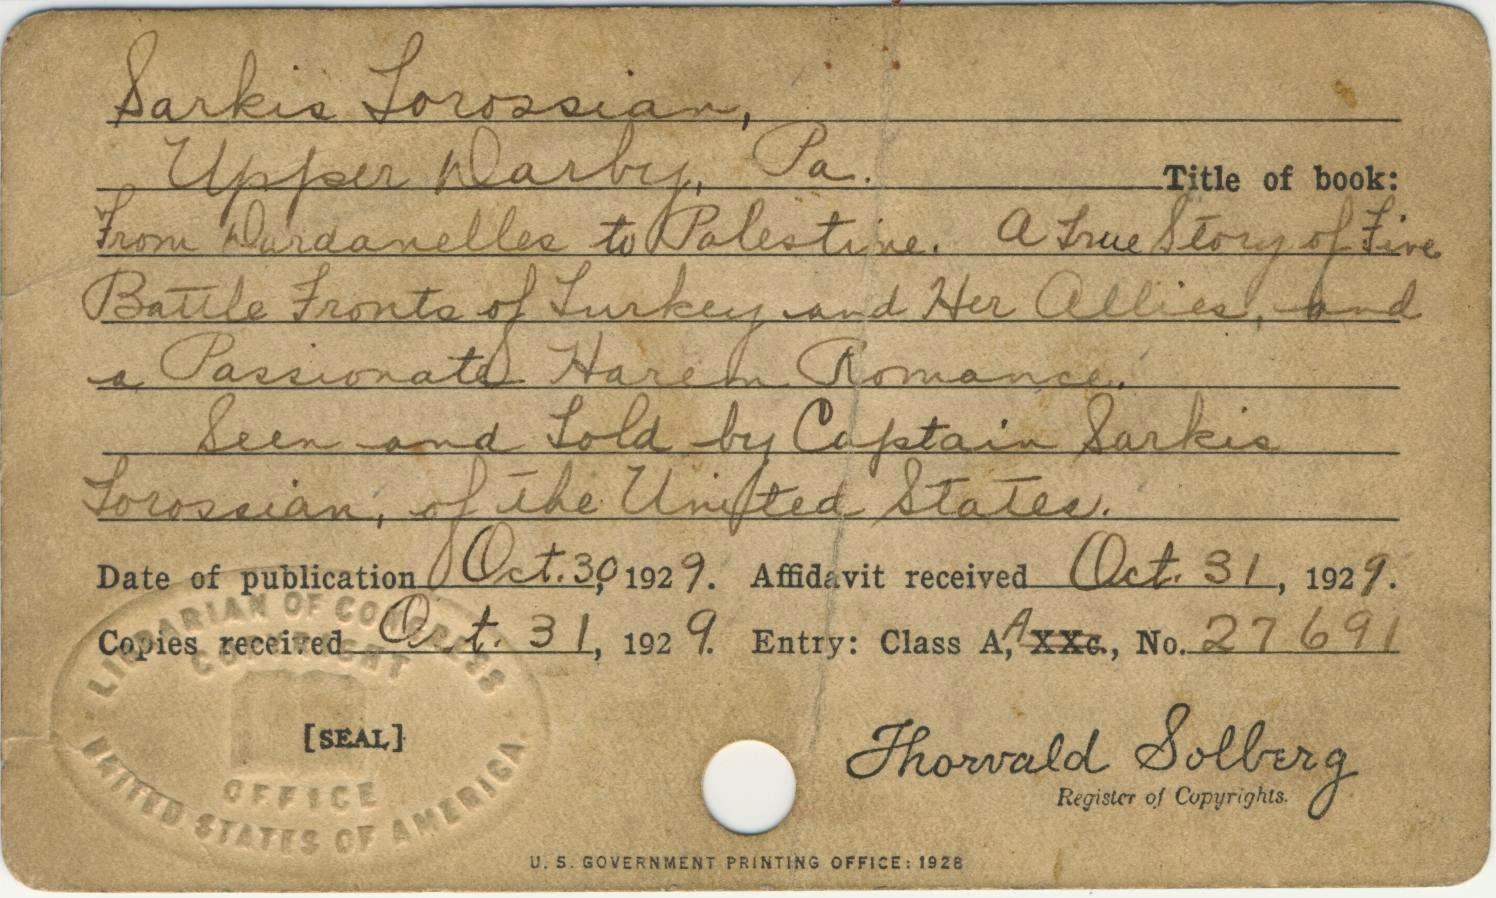 Sarkis Torossian,
Upper Darby, Pa. Title of book:
From Dardanelles to Palestine. A True Story of Five
Battle Fronts of Turkey and Her Allies, and
a Passionate Harem Romance.
Seen and Told by Captain Sarkis
Torossian, of the United States.
Date of publication Oct. 30, 1929. Affidavit received Oct. 31, 1929.
Copies received Oct. 31, 1929. Entry: Class A, A XXc., No. 27691
LIBRARIAN OF CONGRESS
COPYRIGHT
[SEAL]
OFFICE
UNITED STATES OF AMERICA
Thorvald Solberg
Register of Copyrights.
U. S. GOVERNMENT PRINTING OFFICE: 1928